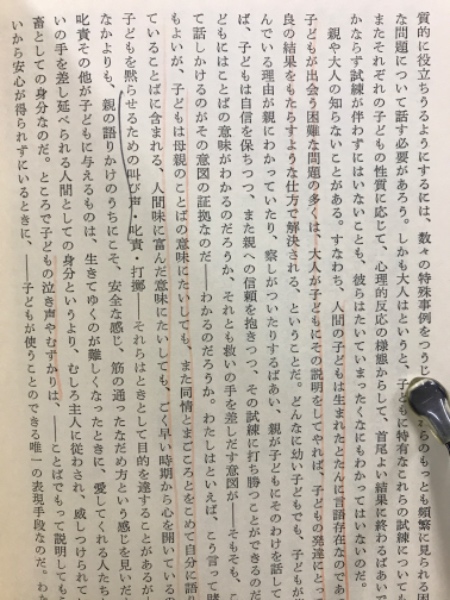 質的に役立ちうるようにするには、数々の特殊事例をつうじ らのもっとも頻繁に見られる困
な問題について話す必要があろう。しかも大人はというと、子どもに特有なこれらの試練についても
またそれぞれの子どもの性質に応じて、心理的反応の様態からして、首尾よい結果に終わるばあいで
かならず試練が伴わずにはいないことも、彼らはたいていまったくなにもわかってはいないのだ。
親や大人の知らないことがある。すなわち、人間の子どもは生まれたとたんに言語存在なのであっ
子どもが出会う困難な問題の多くは、大人が子どもにその説明をしてやれば、子どもの発達にとっ
良の結果をもたらすような仕方で解決される、ということだ。どんなに幼い子どもでも、子どもが
んでいる理由が親にわかっていたり、察しがついたりするばあい、親が子どもにそのわけを話して
ば、子どもは自信を保ちつつ、また親への信頼を抱きつつ、その試練に打ち勝つことができるのだ
どもにはことばの意味がわかるのだろうか、それとも救いの手を差しだす意図が――そもそも、こ
て話しかけるのがその意図の証拠なのだ――わかるのだろうか。わたしはといえば、こう言って
もよいが、子どもは母親のことばの意味にたいしても、また同情とまごころとをこめて自分に語り
ていることばに含まれる、人間味に富んだ意味にたいしても、ごく早い時期から心を開いているの
子どもを黙らせるための叫び声・叱責・打擲――それらはときとして目的を達することがあるが
なかよりも、親の語りかけのうちにこそ、安全な感じ、筋の通ったなだめ方という感じを見いだ
叱責その他が子どもに与えるものは、生きてゆくのが難しくなったときに、愛してくれる人たち
いの手を差し延べられる人間としての身分というより、むしろ主人に従わされ、威しつけられて
畜としての身分なのだ。ところで子どもの泣き声やむずかりは、――ことばでもって説明しても
いから安心が得られずにいるときに、――子どもが使うことのできる唯一の表現手段なのだ。わ